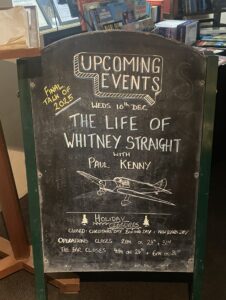 UPCOMING
EVENTS
FINAL
TALK OF
2025
WEDS 10TH DEC
THE LIFE OF
WHITNEY STRAIGHT
WITH
PAUL KENNY
HOLIDAY
CLOSED CHRISTMAS DAY BOXING DAY + NEW YEARS DAY
OPERATIONS CLOSES 2PM ON 24TH + 31ST
THE BAR CLOSES 4PM ON 24TH 6PM ON 31